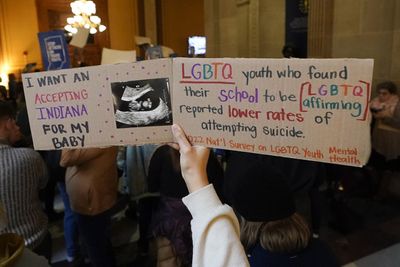 I WANT AN
ACCEPTING
INDIANA
FOR MY
BABY
LGBTQ youth who found
their school to be [LGBTQ
affirming]
reported lower rates of
attempting suicide.
2022 Nat'l Survey on LGBTQ Youth Mental
Health